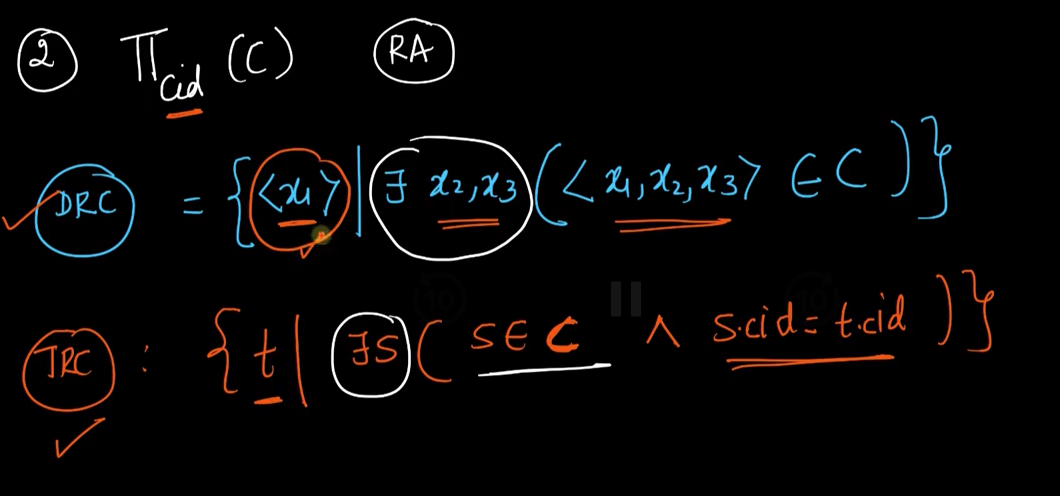 ② Π cid (C) RA
DRC = {<x1> | ∃ x2,x3 (<x1,x2,x3> ∈ C)}
TRC : {t | ∃S (S∈C ∧ S.cid = t.cid)}